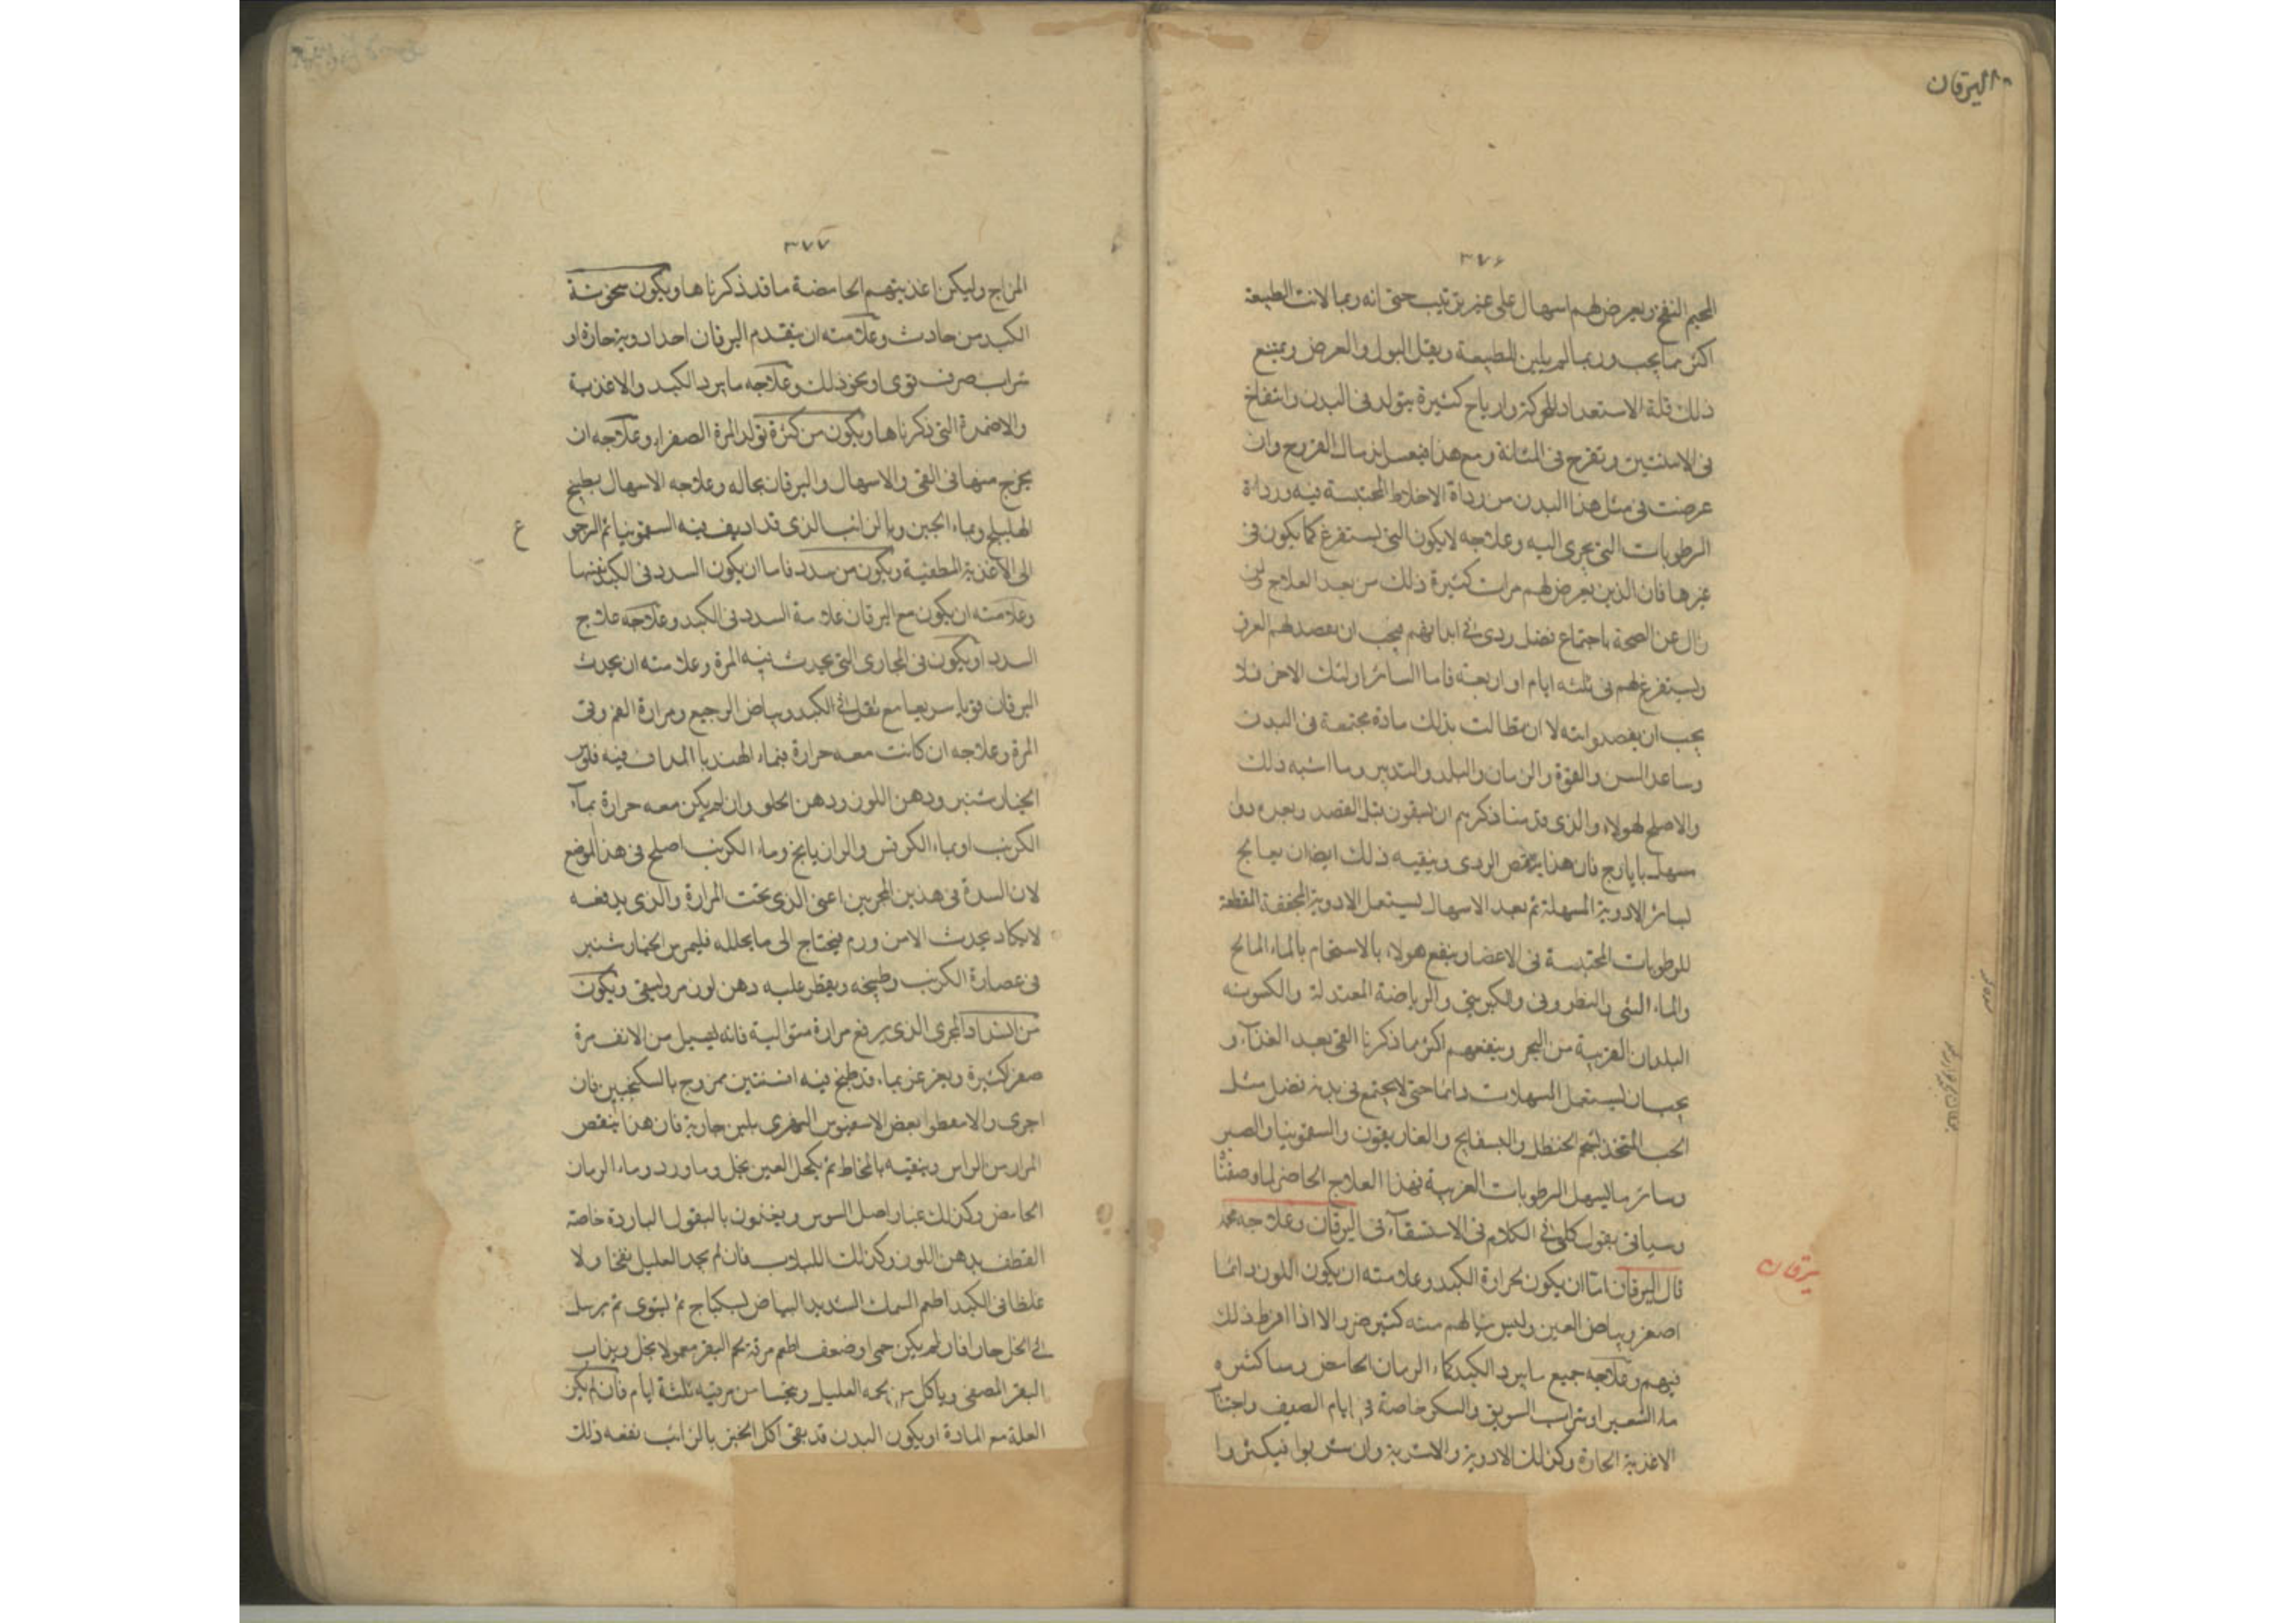 اليرقان
٣٧٦
اللحيم النفخ ويعرض لهم اسهال على غير ترتيب حتى انه ربما لانت الطبيعة
اكثر مما يجب وربما لم يلين الطبيعة ويقل البول والعرض ويمنع
ذلك قلة الاستعداد للحركة وارياح كثيرة يتولد فى البدن وانتفاخ
فى الانثيين وتقرح فى المثانة ومع هذا القروح وان
عرضت فى مثل هذا البدن من رداة الاخلاط المحتبسة فيه ورداة
الرطوبات التى يجرى اليه وعلاجه لا يكون التى يستفرغ كما يكون فى
غيرها فان الذين يعرض لهم مرات كثيرة ذلك من بعد العلاج
زال عن الصحة باجتماع فضل ردى فى ابدانهم فيجب ان يفصد لهم العرق
ويستفرغ لهم فى ثلثه ايام او اربعة فاما السائر اولئك الاخر فلا
يجب ان يفصدوا بتة الا ان بذلك مادة مجتمعة فى البدن
وساعد السن والقوة والزمان والبلد والتدبير وما اشبه ذلك
والاصلح لهولاء والذى قدمنا ذكرهم ان يسقون قبل الفصد وبعده دوا
مسهل بايارج فان هذا ينقص الردى وينقيه ذلك ايضا ان يعالج
لسائر الادوية المسهلة ثم بعد الاسهال يستعمل الادوية المجففة القطعة
للرطوبات المحتبسة فى الاعضا وينفع هولاء بالاستحمام بالماء المالح
والماء الشبى والنطرونى والكبريتى والرياضة المعتدلة والكسونه
البلدان القريبة من البحر وينفعهم اكثر مما ذكرنا القى بعد الغذآء و
يجب ان يستعمل المسهلات دائما حتى لا يجتمع فى بدنه فضل مثل
الحب المتخذ بشحم الحنظل والبسفايج والغاريقون والسقمونيا والصبر
وسائر ما يسهل الرطوبات الغريبة فهذا العلاج الحاضر لما وصفنا
وسياتى بقول كلى فى الكلام فى الاستسقآء فى اليرقان وعلاجه
يرقان
قال اليرقان اما ان يكون لحرارة الكبد وعلامته ان يكون اللون دائما
اصفر وبياض العين وليس ينالهم منه كثير ضرر الا اذا افرط ذلك
فيهم وعلاجه جميع ما يبرد الكبد كماء الرمان الحامض وماء كشره
ماء الشعير او شراب السويق والسكر خاصة فى ايام الصيف واجتناب
الاغذية الحارة وكذلك الادوية والاشربة وان شربوا فيكثروا
٣٧٧
المزاج وليكن اغذيتهم الحامضة ما قد ذكرناها ويكون سخونة
الكبد من حادث وعلامته ان يتقدم اليرقان احد ادوية حارة او
شراب صرف قوى او نحو ذلك وعلاجه ما يبرد الكبد والاغذية
والاضمدة التى ذكرناها ويكون من كثرة تولد المرة الصفراء وعلاجه ان
يخرج منها فى القى والاسهال واليرقان بحاله وعلاجه الاسهال بطبيخ
الهليلج وبماء الجبن وبالرائب الذى قد اديف فيه السقمونيا ثم الرجوع
الى الاغذية المطفية ويكون من سدد فاما ان يكون السدد فى الكبد نفسها
وعلامته ان يكون مع اليرقان علامة السدد فى الكبد وعلاجه علاج
السدد او يكون فى المجارى التى يحدث فيه المرة وعلامته ان يحدث
اليرقان قويا سريعا مع ثقل فى الكبد وبياض الرجيع ومرارة الفم وقى
المرة وعلاجه ان كانت معه حرارة فبماء الهندبا المداف فيه فلوس
الخيارشنبر ودهن اللوز ودهن الحلو وان لم يكن معه حرارة بماء
الكرنب او بماء الكرفس والرازيانج وماء الكرنب اصلح فى هذا الموضع
لان السدة فى هذين المجريين اعنى الذى تحت المرارة والذى يدفعه
لا يكاد يحدث الا من ورم فيحتاج الى ما يحلله فليمرس الخيارشنبر
فى عصارة الكرنب وطبيخه ويقطر عليه دهن لوز مر ويسقى ويكون
من انسداد المجرى الذى يرفع مرارة متوالية فانه يسيل من الانف مرة
صفرا كثيرة ويغرغر بماء قد طبخ فيه افسنتين ممزوج بالسكنجبين فان
اجرى والا سعطوا بعض بلبن جارية فان هذا ينقص
المرار من الراس وينقيه بالمخاط ثم يكحل العين بخل وماورد وماء الرمان
الحامض وكذلك عصارا اصل السوس ويغذون بالبقول الباردة خاصة
القطف بدهن اللوز وكذلك اللبلاب فان لم يجد العليل نفخا ولا
غلظا فى الكبد اطعم السمك الشديد البياض لسكباج ثم ليشوى ثم يرسل
فى الخل حارا فان لم يكن حمى او ضعف اطعم مرقة لحم البقر معمولا بخل ويذاب
البقر المصفى وياكل من لحمه العليل ويتحسا من مرقته ثلثة ايام فان لم يكن
العلة مع المادة او يكون البدن قد نقى اكل الخبز بالرائب نفعه ذلك
ع